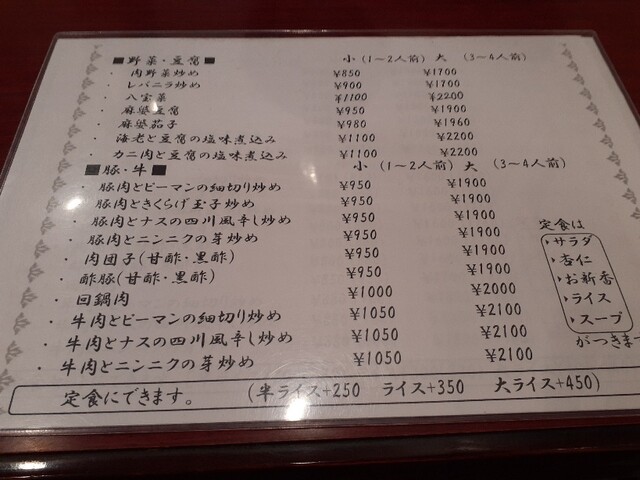 ■野菜・豆腐■ 小 (1〜2人前) 大 (3〜4人前)
・ 肉野菜炒め ¥850 ¥1700
・ レバニラ炒め ¥900 ¥1700
・ 八宝菜 ¥1100 ¥2200
・ 麻婆豆腐 ¥950 ¥1900
・ 麻婆茄子 ¥980 ¥1960
・ 海老と豆腐の塩味煮込み ¥1100 ¥2200
・ カニ肉と豆腐の塩味煮込み ¥1100 ¥2200
■豚・牛■ 小 (1〜2人前) 大 (3〜4人前)
・ 豚肉とピーマンの細切り炒め ¥950 ¥1900
・ 豚肉ときくらげ玉子炒め ¥950 ¥1900
・ 豚肉とナスの四川風辛し炒め ¥950 ¥1900
・ 豚肉とニンニクの芽炒め ¥950 ¥1900
・ 肉団子(甘酢・黒酢) ¥950 ¥1900
・ 酢豚(甘酢・黒酢) ¥950 ¥1900
・ 回鍋肉 ¥1000 ¥2000
・ 牛肉とピーマンの細切り炒め ¥1050 ¥2100
・ 牛肉とナスの四川風辛し炒め ¥1050 ¥2100
・ 牛肉とニンニクの芽炒め ¥1050 ¥2100
定食は
・サラダ
・杏仁
・お新香
・ライス
・スープ
がつきます
定食にできます。 (半ライス+250 ライス+350 大ライス+450)